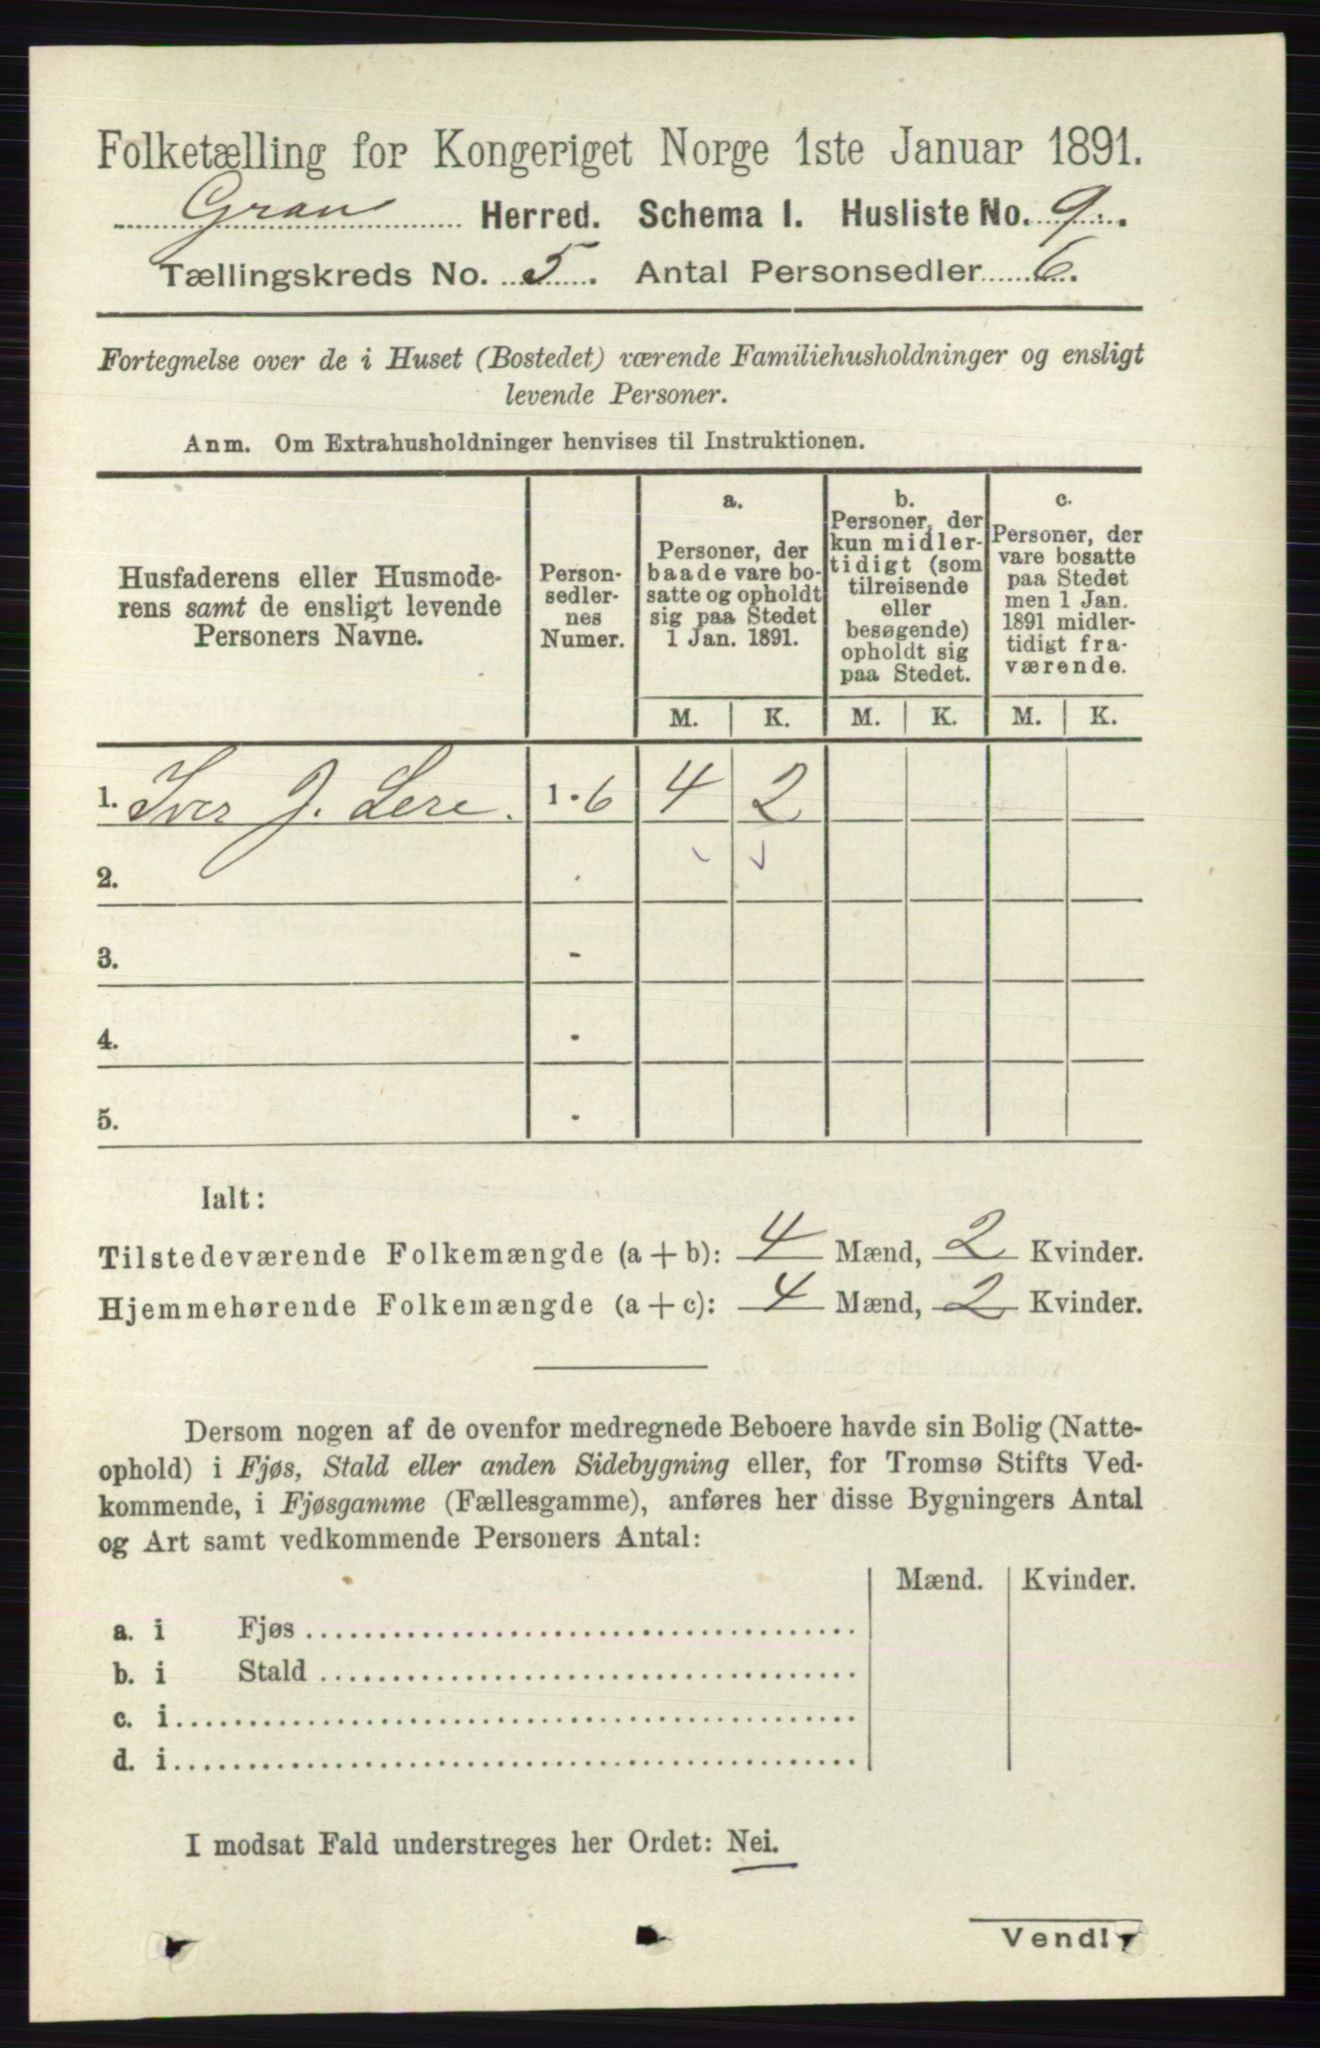 Folketælling for Kongeriget Norge 1ste Januar 1891.
Gran Herred. Schema 1. Husliste No. 9.
Tællingskreds No. 5. Antal Personsedler 6.
Fortegnelse over de i Huset (Bostedet) værende Familiehusholdninger og ensligt
levende Personer.
Anm. Om Extrahusholdninger henvises til Instruktionen.
Husfaderens eller Husmode-
rens samt de ensligt levende
Personers Navne.
Person-
sedler-
nes
Numer.
a.
Personer, der
baade vare bo-
satte og opholdt
sig paa Stedet
1 Jan. 1891.
b.
Personer, der
kun midler-
tidigt (som
tilreisende
eller
besøgende)
opholdt sig
paa Stedet.
c.
Personer, der
vare bosatte
paa Stedet
men 1 Jan.
1891 midler-
tidigt fra-
værende.
M. K. M. K. M. K.
1. Iver J. Lere. 1 - 6 4 2
2.
3. -
4. -
5. -
Ialt:
Tilstedeværende Folkemængde (a + b): 4 Mænd, 2 Kvinder.
Hjemmehørende Folkemængde (a + c): 4 Mænd, 2 Kvinder.
Dersom nogen af de ovenfor medregnede Beboere havde sin Bolig (Natte-
ophold) i Fjøs, Stald eller anden Sidebygning eller, for Tromsø Stifts Ved-
kommende, i Fjøsgamme (Fællesgamme), anføres her disse Bygningers Antal
og Art samt vedkommende Personers Antal:
Mænd. Kvinder.
a. i Fjøs
b. i Stald
c. i
d. i
I modsat Fald understreges her Ordet: Nei.
Vend!